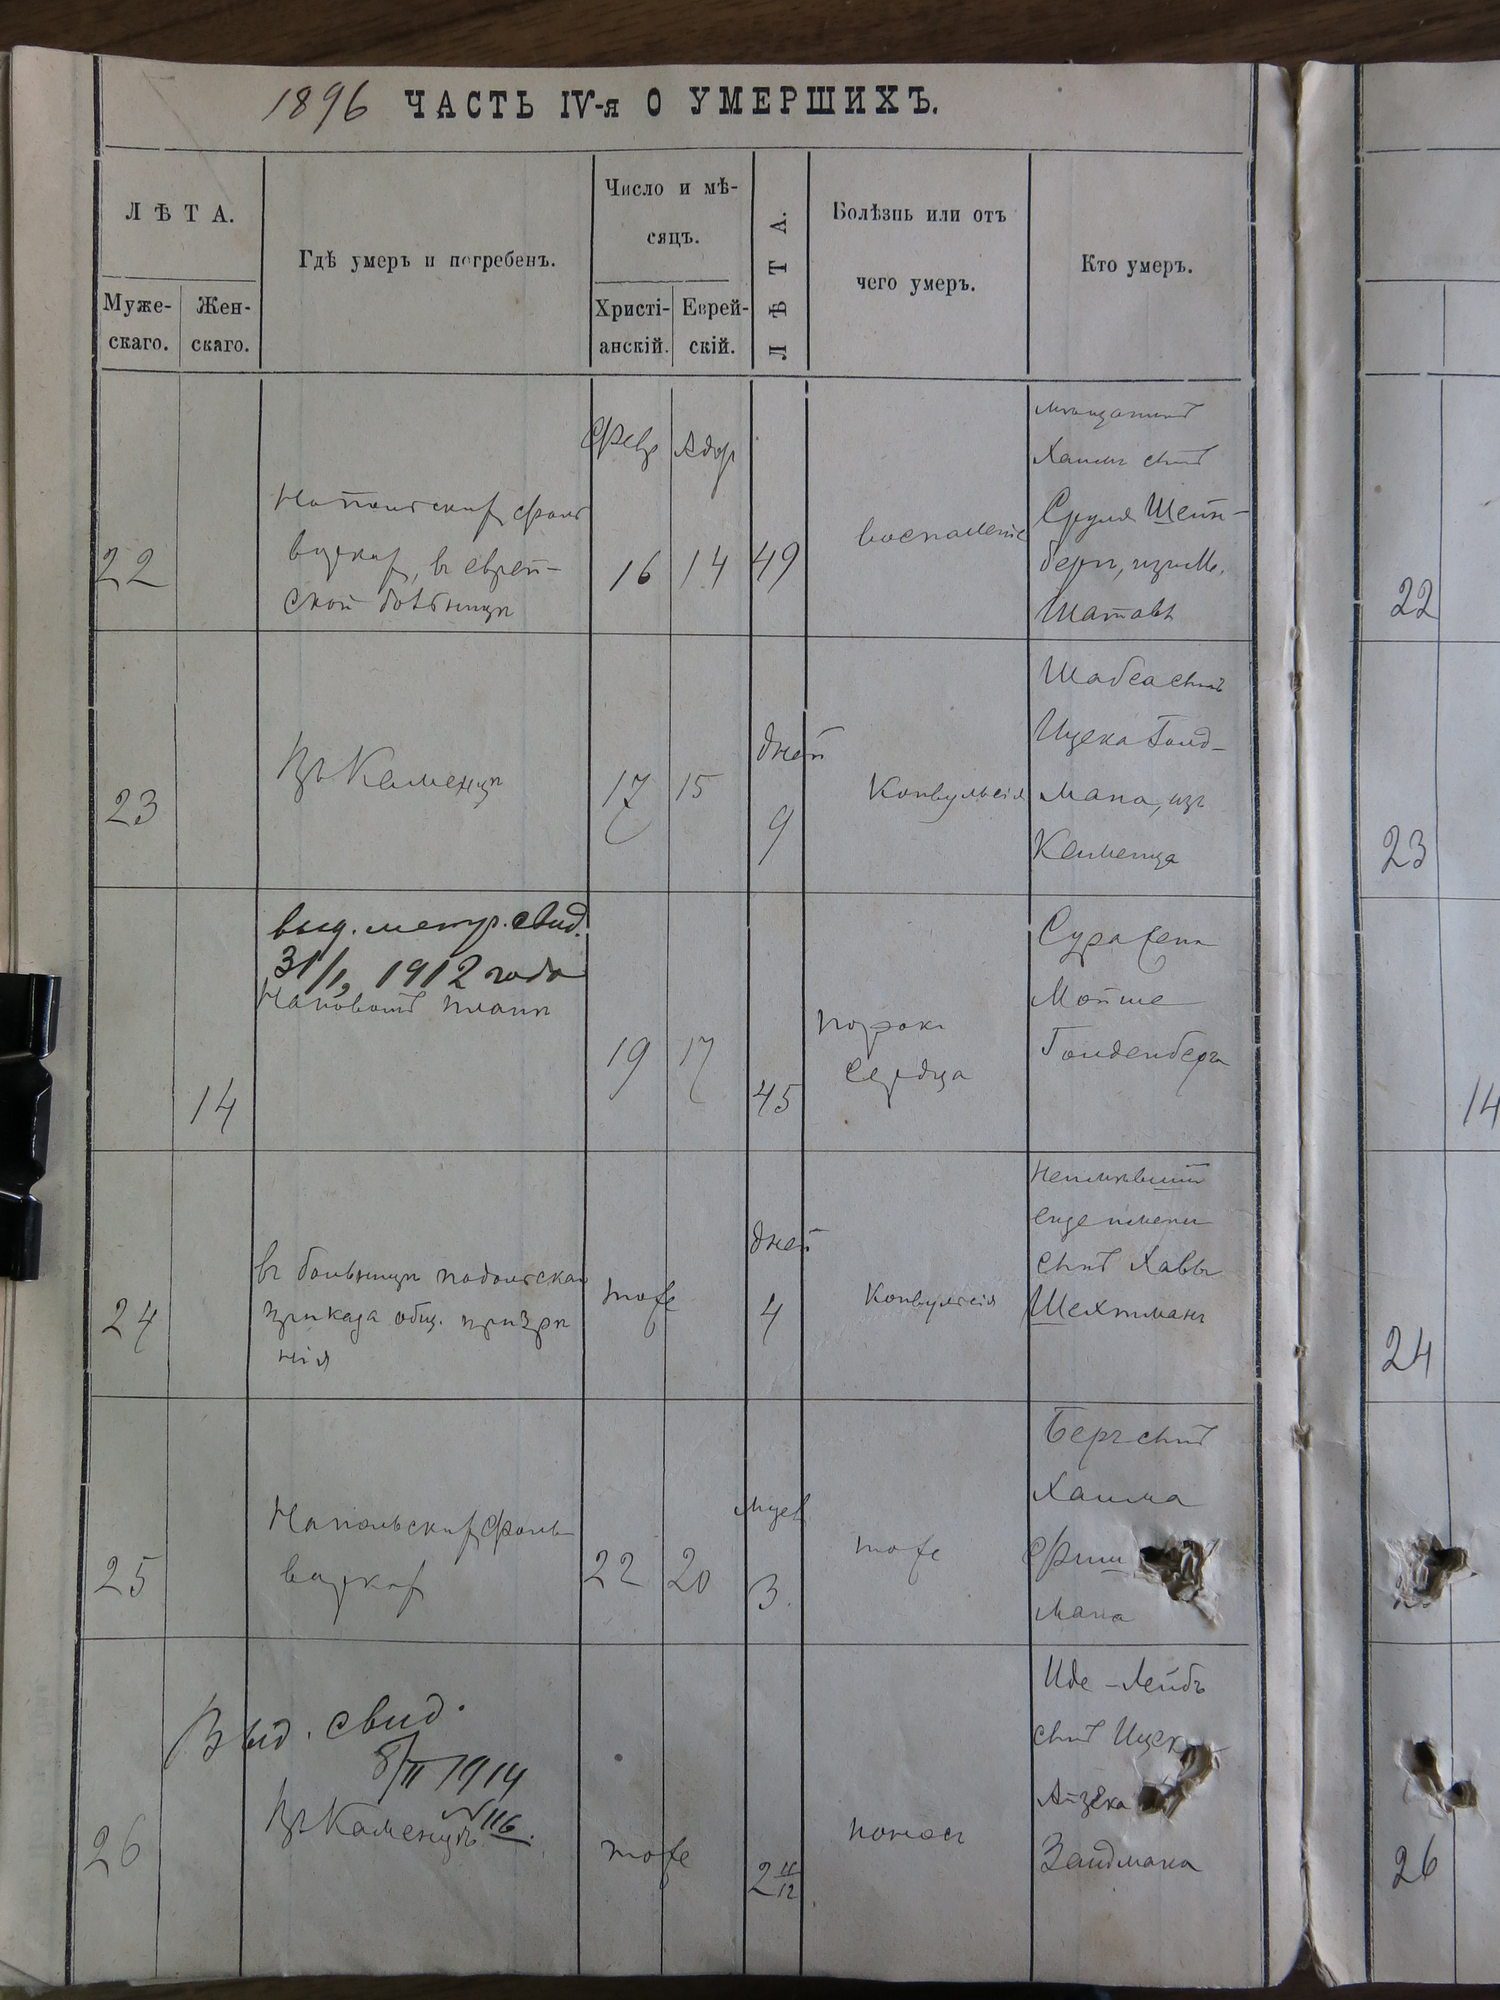 1896 ЧАСТЬ IV-я О УМЕРШИХЪ.
ЛѢТА.
Муже-
скаго.
Жен-
скаго.
Гдѣ умеръ и погребенъ.
Число и мѣ-
сяцъ.
Христі-
анскій.
Еврей-
скій.
ЛѢТА.
Болѣзнь или отъ
чего умеръ.
Кто умеръ.
22
На польскихъ фоль
варкахъ, въ еврей-
ской больницѣ
Февр
16
Адор
14
49
воспаленіе
мѣщанинъ
Хаимъ сынъ
Сруля Штейн-
бергъ, изъ м.
Шатавы
22
23
Въ Каменцѣ
17
15
дней
9
Конвульсія
Шабса сынъ
Ицека Голд-
мана, изъ
Каменца
23
14
выд. метр. свид.
31/I, 1912 года
На новомъ планѣ
19
17
45
порокъ
сердца
Сура жена
Мойше
Голденберга
14
24
въ больницѣ подольскаго
приказа общ. призрѣ
нія
тоже
дней
4
Конвульсія
неимѣвшій
еще имени
сынъ Хавы
Шехтманъ
24
25
На польскихъ фоль
варкахъ
22
20
мѣсев
3
тоже
Беръ сынъ
Хаима
Фиш
мана
26
Выд. свид.
8/II 1914
№ 116.
Въ Каменцѣ
тоже
2 11/12
поносъ
Иде-Лейбъ
сынъ Ицек
Айзека
Зандмана
26